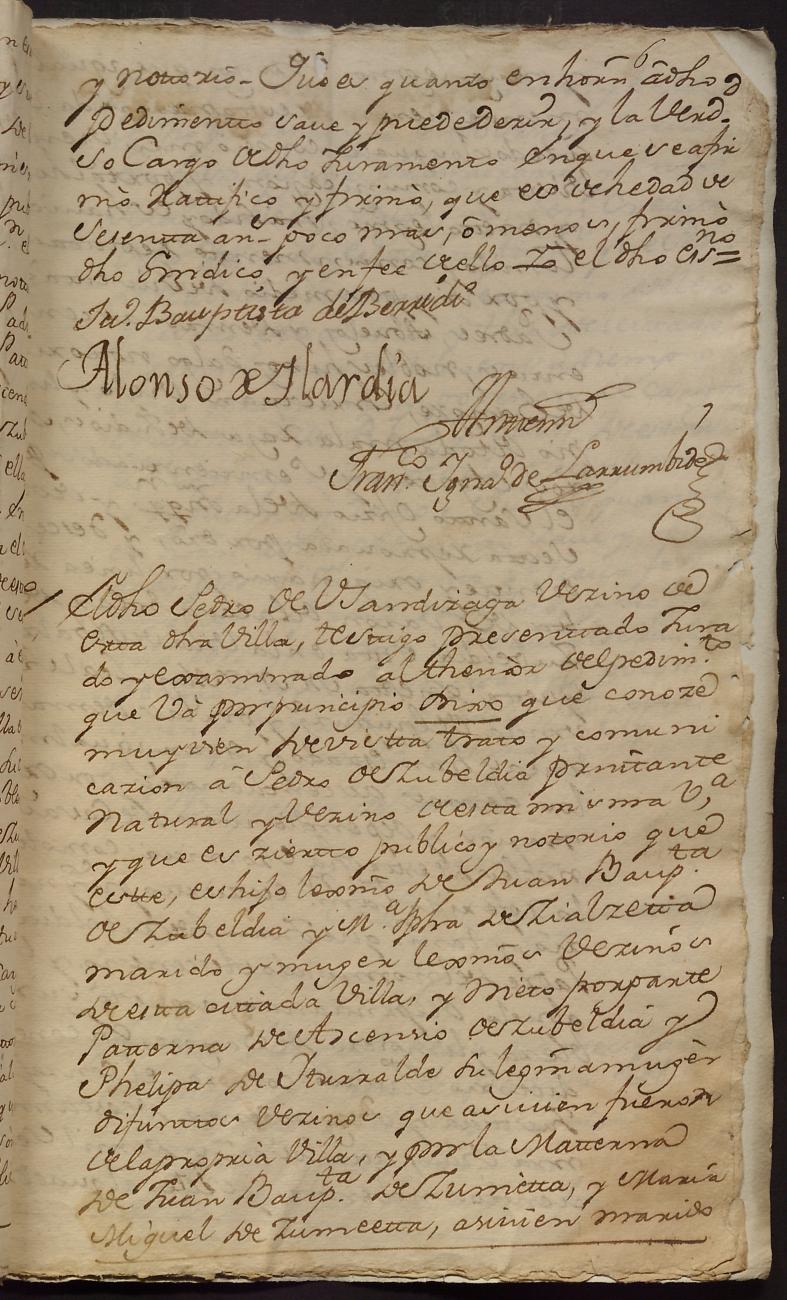 y nottorio = Que es quanto en horn.^n a dho
Pedimentto save y puede dezir, y la Verd.
so Cargo de dho Juramento en que se afir
mò Rattifico y firmò, que es de hedad de
sesentta añ.^s poco mas, ò menos, firmò
dho Sindico, y en fee de ello Yo el dho ess.^no =
Ju.^o Bauptista de Berridi
Alonso de Ilardia
Antemi
Fran.^co Ygna.^o de Larrumbide
El dho Pedro de Vsandizaga Vezino de
estta dha Villa, testtigo presenttado Jura
do y examinado al thenòr del pedim.^to
que Và por principio Dixo que conoze
muy vien de vistta tratto y comuni
cazion à Pedro de Zubeldia pnttante
Natural y Vezino de estta misma V.^a
y que es ziertto publico y notorio que
estte, es hijo lexmo de Juan Baup.^ta
de Zubeldia y M.^a Jpha de Lialzetta
marido y muger lexmos Vezinos
de estta cittada Villa, y Nieto por parte
Patterna de Ascensio de Zubeldia y
Phelipa de Yturralde su legma muger
difunttos Vezinos que asi vien fueron
de la propria Villa, y por la Matterna
de Juan Baup.^ta de Zumetta, y Maria
Miguel de Zumeetta, asi vien marido